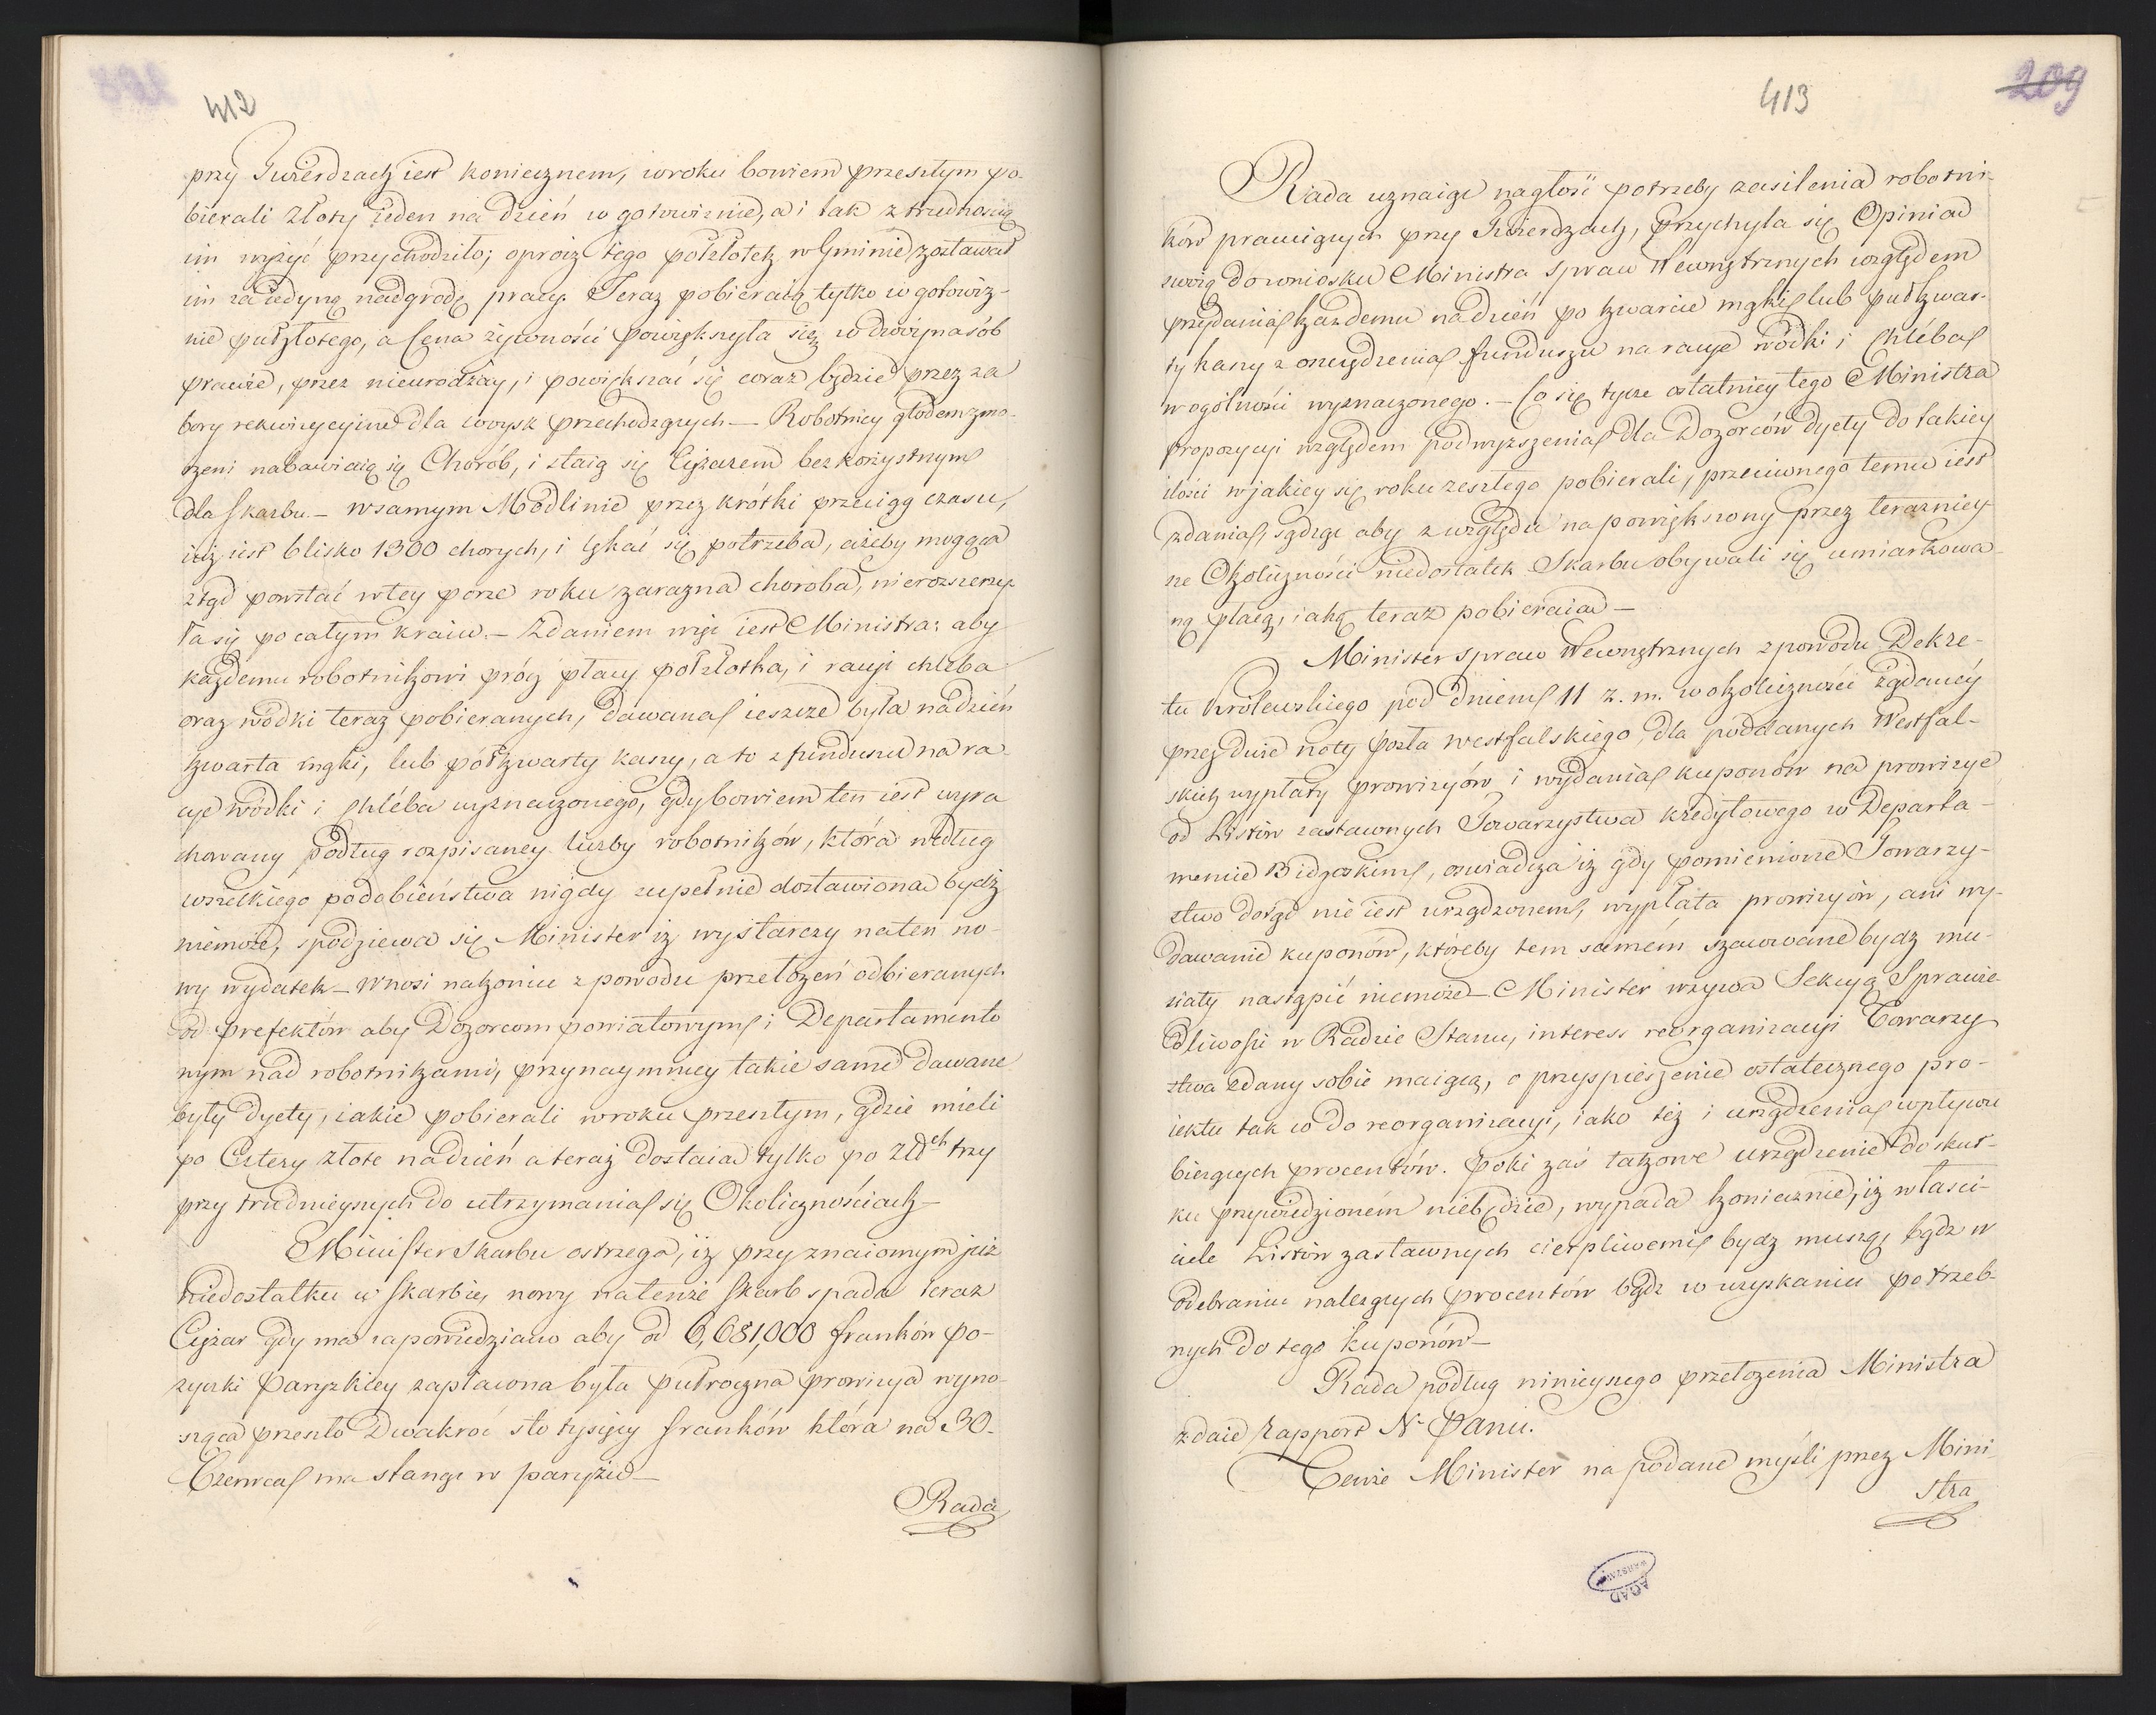 412
przy Twierdzach iest koniecznem, w roku bowiem przeszłym po-
bierali złoty ieden na dzień w gotowiznie, a i tak z trudnością
im wyżyć przychodziło; oprócz tego półzłotek w Gminie zostawał
im za iedyną nadgrodę pracy. Teraz pobieraią tylko w gotowiz-
nie pułzłotego, a Cena żywności powiększyła się w dwóynasób
prawie, przez nieurodzay, i powiększać się coraz będzie przez za
bory rekwizycyine dla woysk przechodzących — Robotnicy głodem zmo-
rzeni nabawiaią się Chorób, i staią się Ciężarem bezkorzystnym
dla Skarbu. — w samym Modlinie przez krótki przeciąg czasu,
iuż iest blisko 1300 chorych, i lękać się potrzeba, ażeby mogąca
ztąd powstać w tey porze roku zaraźna choroba, nierozszerzy-
ła się po całym kraiu. — Zdaniem więc iest Ministra: aby
każdemu robotnikowi prócz płacy półzłotka, i racyi chleba
oraz wódki teraz pobieranych, dawana ieszcze była na dzień
kwarta mąki, lub półkwarty kaszy, a to z funduszu na ra
cye wódki i chléba wyznaczonego, gdy bowiem ten iest wyra
chowany podług rozpisaney liczby robotników, która według
wszelkiego podobieństwa nigdy zupełnie dostawiona bydź
niemoże, spodziewa się Minister iż wystarczy na ten no-
wy wydatek — Wnosi nakoniec z powodu przełożeń odbieranych
od prefektów aby Dozorcom powiatowym i Departamento
wym nad robotnikami, przynaymniey takie same dawane
były dyety, iakie pobierali w roku przeszłym, gdzie mieli
po Cztery złote na dzień a teraz dostaia tylko po złł^ch trzy
przy trudnieyszych do utrzymania się Okolicznościach —
Minister Skarbu ostrzega, iż przy znaiomym już
niedostatku w Skarbie, nowy na tenże Skarb spada teraz
Ciężar gdy ma zapowiedziano aby od 6,681,000 franków po-
życzki Paryzkiey zapłacona była pułroczna prowizya wyno-
sząca przeszło Dwakroć sto tysięcy franków która na 30.
Czerwca ma stanąć w paryżu —
Rada
413
209
Rada uznaiąc nagłość potrzeby zasilenia robotni-
ków pracuiących przy Twierdzach, Przychyla się Opinią
swoią do wniosku Ministra Spraw Wewnętrznych względem
przydania każdemu na dzień po kwarcie mąki lub pułkwar-
ty kaszy z oszczędzenia funduszu na racye wódki i chléba
w ogólności wyznaczonego. — Co się tycze ostatniey tego Ministra
propozycyi względem podwyższenia dla Dozorców dyety do takiey
ilości w jakiey się roku zeszłego pobierali, przeciwnego temu iest
zdania, sądząc aby z względu na powiększony przez teraźniey-
sze Okoliczności niedostatek Skarbu obywali się umiarkowa-
ną płacą, iaką teraz pobieraia —
Minister spraw Wewnętrznych z powodu Dekre-
tu Królewskiego pod dniem 11 z. m. w okoliczności żądaney
przez dwie noty posła westfalskiego, dla poddanych Westfal-
skich wypłaty prowizyów i wydania kuponów na prowizye
od Listów zastawnych Towarzystwa kredytowego w Departa-
mencie Bidgoskim, oswiadcza iż gdy pomienione Towarzy-
stwo dotąd nie iest urządzonem, wypłata prowizyów, ani wy-
dawanie kuponów, któreby tem samém szacowane bydz mu-
siały nastąpić niemoże — Minister wzywa Sekcyą Sprawie-
dliwości w Radzie Stanu, interess reorganizacyi Towarzy
stwa zdany sobie maiącą, o przyspieszenie ostatecznego pro-
iektu tak co do reorganizacyi, iako też i urządzenia wpływu
bieżących procentów. Poki zaś takowe urządzenie do skut-
ku przywiedzioném niebędzie, wypada koniecznie, iż właści-
ciele Listów zastawnych cierpliwemi bydz muszą bądz w
odebraniu należących procentów bądz w uzyskaniu potrzeb-
nych do tego kuponów —
Rada podług ninieyszego przełożenia Ministra
zdaie Rapport N. Panu.
Tenże Minister na podane myśli przez Mini
stra
AGAD
WARSZAWA